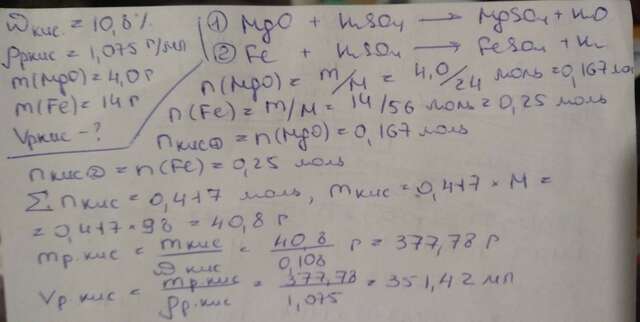 ωкис. = 10,8%
ρркис = 1,075 г/мл
m(MgO) = 4,0 г
m(Fe) = 14 г
Vркис - ?
① MgO + H₂SO₄ → MgSO₄ + H₂O
② Fe + H₂SO₄ → FeSO₄ + H₂
n(MgO) = m/M = 4,0/24 моль = 0,167 моль
n(Fe) = m/M = 14/56 моль = 0,25 моль
nкис① = n(MgO) = 0,167 моль
nкис② = n(Fe) = 0,25 моль
Σ nкис = 0,417 моль, mкис = 0,417 × M =
= 0,417 × 98 = 40,8 г
mр.кис = mкис/ωкис = 40,8/0,108 г = 377,78 г
Vр.кис = mр.кис/ρр.кис = 377,78/1,075 = 351,42 мл